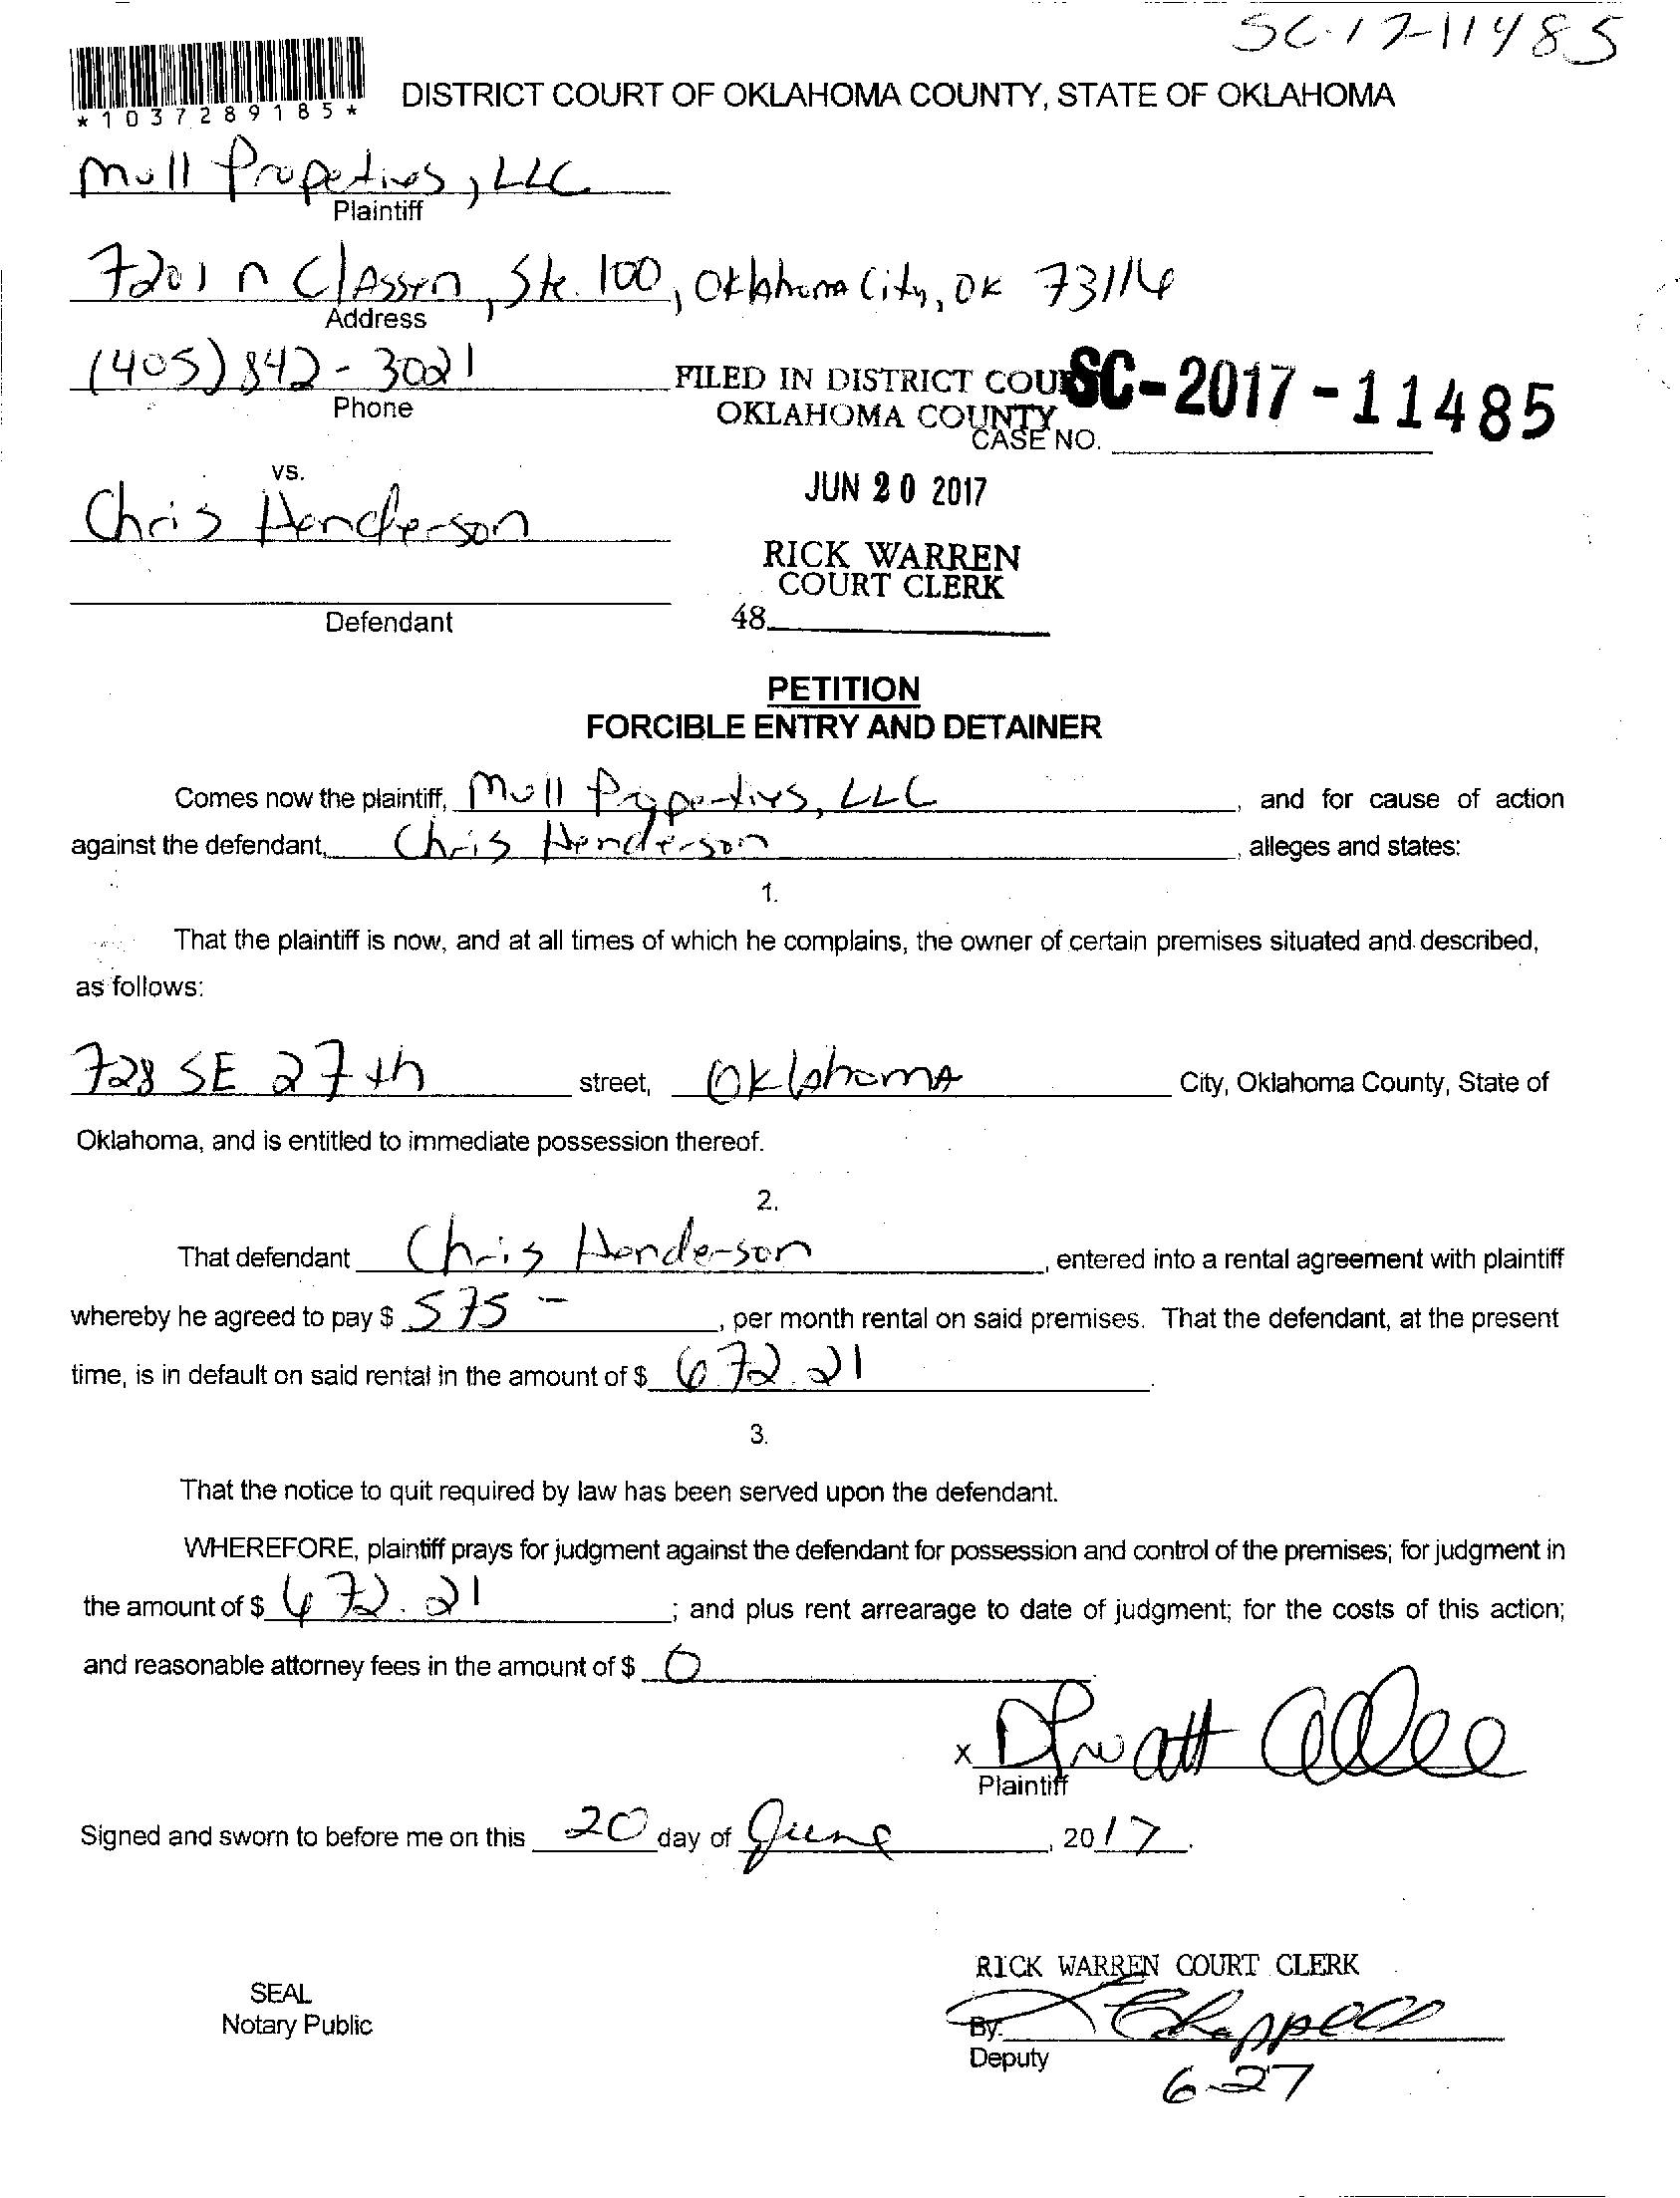 SC-17-11485
*1037289185*
DISTRICT COURT OF OKLAHOMA COUNTY, STATE OF OKLAHOMA
Mull Properties, LLC
Plaintiff
7201 N Classen, Ste. 100, Oklahoma City, OK 73116
Address
(405) 842-3021
Phone
FILED IN DISTRICT COU
SC-2017-11485
OKLAHOMA COUNTY
CASE NO.
vs.
JUN 20 2017
Chris Henderson
RICK WARREN
COURT CLERK
Defendant
48
PETITION
FORCIBLE ENTRY AND DETAINER
Comes now the plaintiff, Mull Properties, LLC, and for cause of action
against the defendant, Chris Henderson, alleges and states:
1.
That the plaintiff is now, and at all times of which he complains, the owner of certain premises situated and described,
as follows:
728 SE 27th street, Oklahoma City, Oklahoma County, State of
Oklahoma, and is entitled to immediate possession thereof.
2.
That defendant Chris Henderson, entered into a rental agreement with plaintiff
whereby he agreed to pay $ 575 -, per month rental on said premises. That the defendant, at the present
time, is in default on said rental in the amount of $ 672.21.
3.
That the notice to quit required by law has been served upon the defendant.
WHEREFORE, plaintiff prays for judgment against the defendant for possession and control of the premises; for judgment in
the amount of $ 672.21; and plus rent arrearage to date of judgment; for the costs of this action;
and reasonable attorney fees in the amount of $ 0.
x
Plaintiff
Signed and sworn to before me on this 20 day of June, 2017.
RICK WARREN COURT CLERK
SEAL
Notary Public
By:
Deputy
6-27